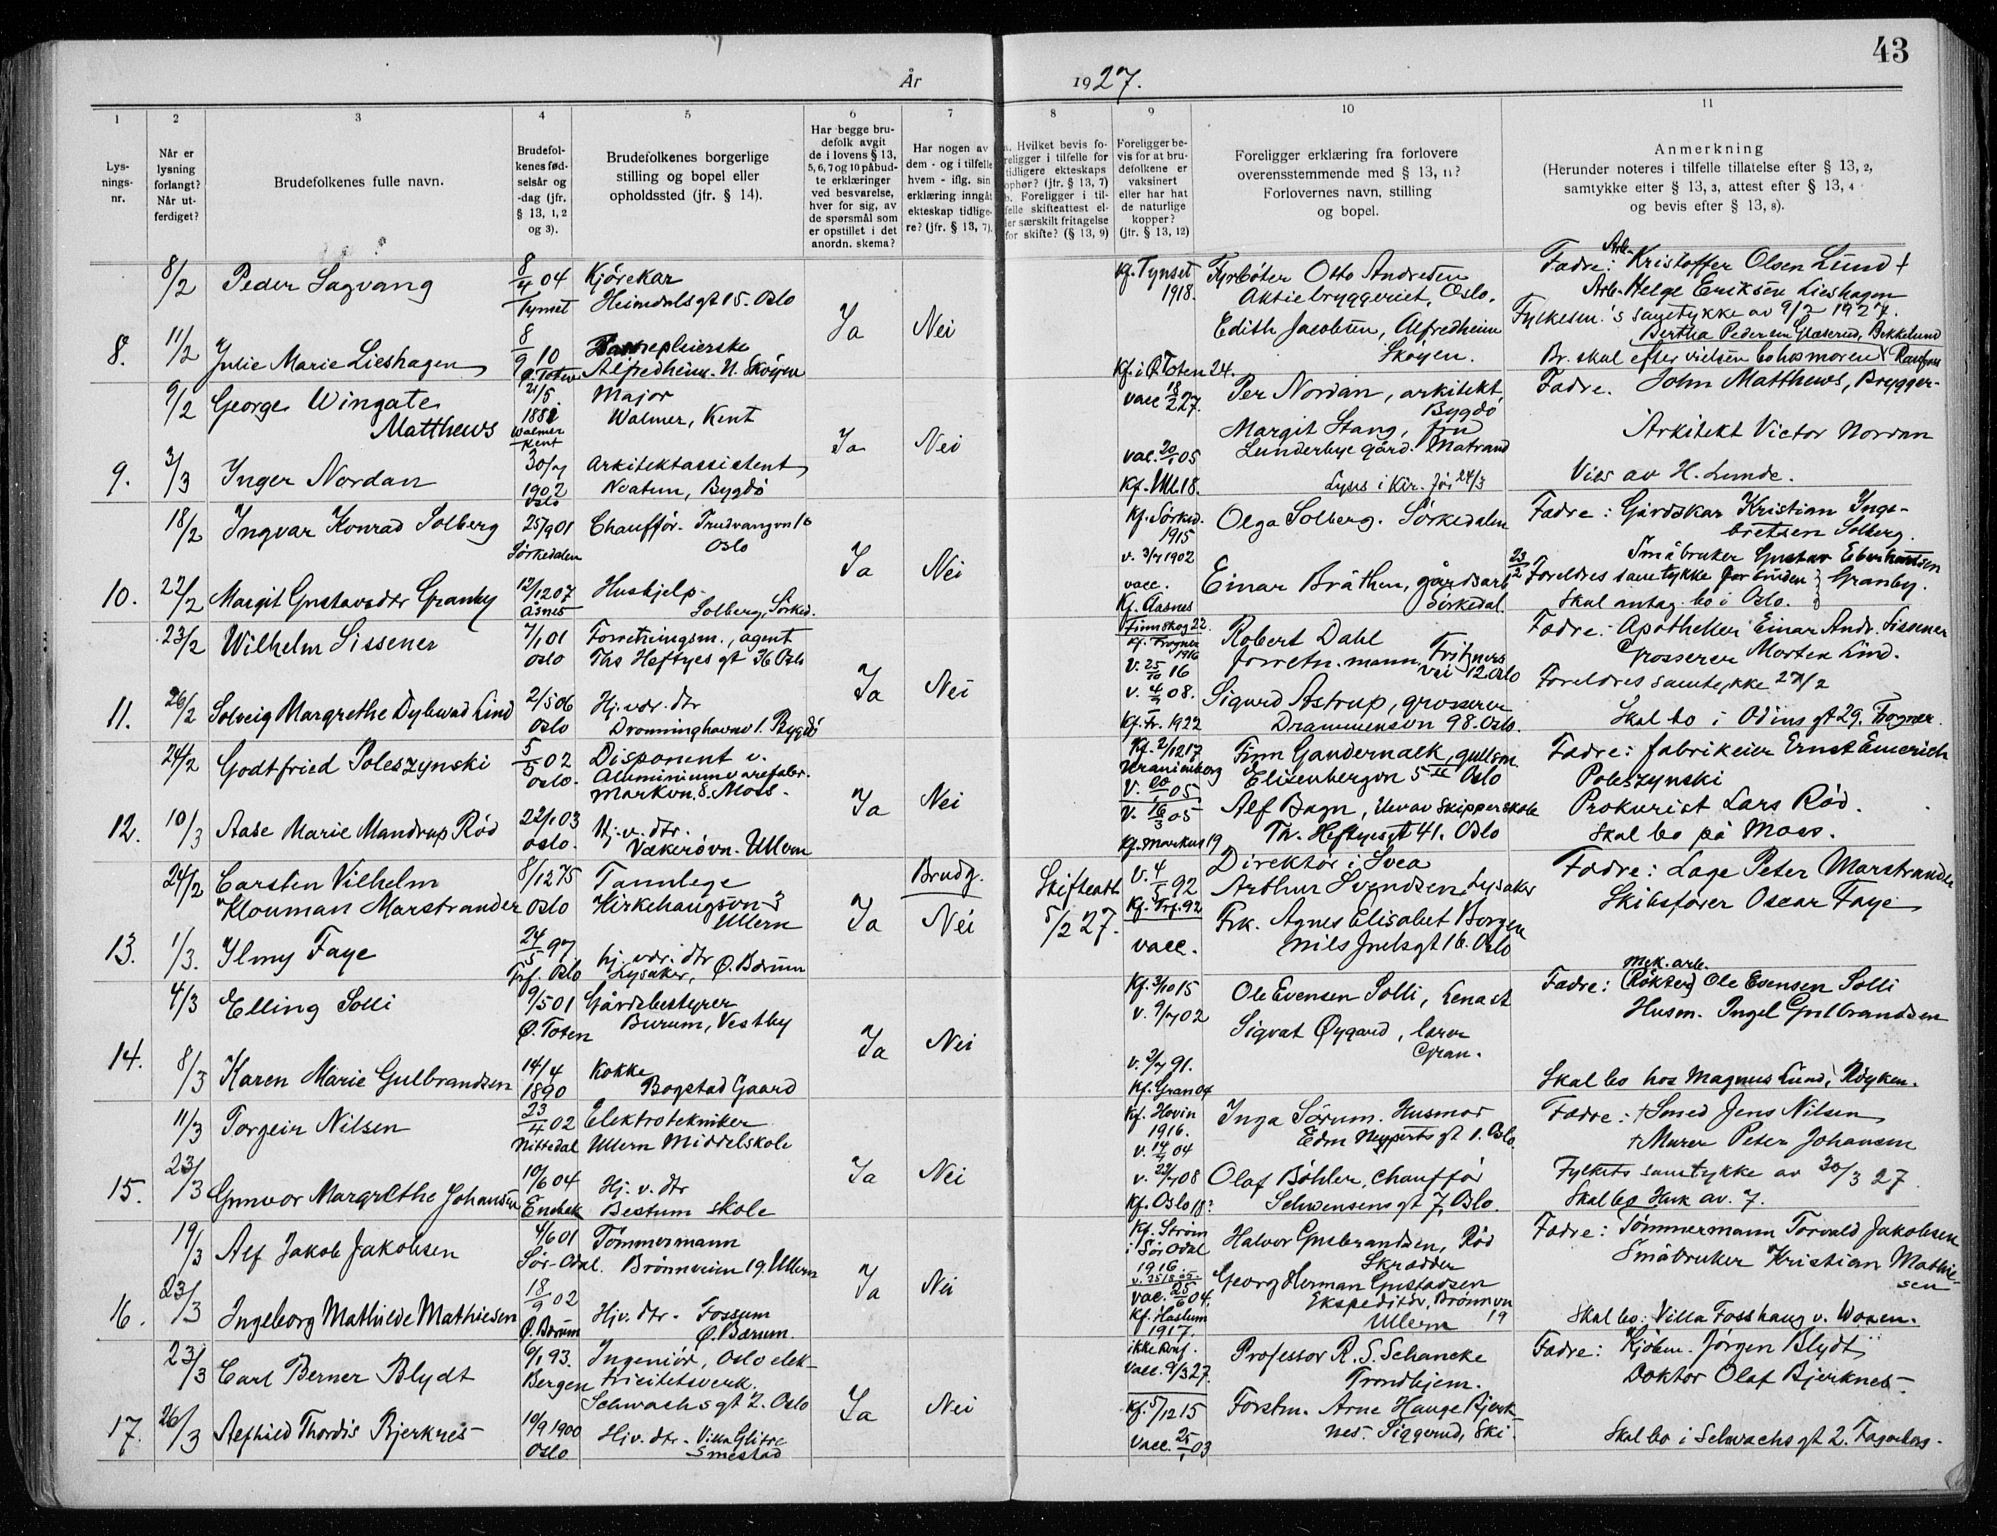 43
År 1927.
1 2 3 4 5 6 7 8 9 10 11
Lysningsnr.
Når er lysning forlangt? Når utferdiget?
Brudefolkenes fulle navn.
Brudefolkenes fødselsår og -dag (jfr. § 13, 1, 2 og 3).
Brudefolkenes borgerlige stilling og bopel eller opholdssted (jfr. § 14).
Har begge brudefolk avgit de i lovens § 13, 5, 6, 7 og 10 påbudte erklæringer ved besvarelse, hver for sig, av de spørsmål som er opstillet i det anordn. skema?
Har nogen av dem - og i tilfelle hvem - iflg. sin erklæring inngåt ekteskap tidligere? (jfr. § 13, 7).
a. Hvilket bevis foreligger i tilfelle for tidligere ekteskaps ophør? (jfr. § 13, 7) b. Foreligger i tilfelle skifteattest eller særskilt fritagelse for skifte? (§ 13, 9)
Foreligger bevis for at brudefolkene er vaksinert eller har hat de naturlige kopper? (jfr. § 13, 12)
Foreligger erklæring fra forlovere overensstemmende med § 13, 11? Forlovernes navn, stilling og bopel.
Anmerkning (Herunder noteres i tilfelle tillatelse efter § 13, 2, samtykke etter § 13, 3, attest efter § 13, 4 og bevis efter § 13, 8).
8/2 Peder Sagvang 8/4 04 Tynset Kjørekar Heimdalsgt 15. Oslo
Kf. Tynset 1918. Fyrbøter Otto Andresen Aktiebryggeriet, Oslo.
Fædre: Arb. Kristoffer Olsen Lund †
Arb. Helge Eriksen Lieshagen
8. 11/2 Julie Marie Lieshagen 8/9 10 Ø. Toten Alfredheim. N. Skøyen Ja Nei
Kf. i Ø. Toten 24. Edith Jacobsen, Alfredheim Skøyen.
Fylkesm.'s samtykke av 9/2 1927.
Br. skal efter vielsen bo hos moren Bertha Pedersen
9/2 George Wingate Matthews 21/5 1882 Walmer Kent Major Walmer, Kent
vacc 18/2 27. Per Nordan, arkitekt, Bygdø
Fædre. John Matthews, Brygger
Arkitekt Victor Nordan
9. 3/3 Inger Nordan 30/7 1902 Oslo Arkitektassistent Noatun, Bygdø Ja Nei
vac. 20/1 05 Kf. Ull. 18. Margit Stang, fru Lunderbye gård. Matrand
Lyses i Kir. før 24/3
Vies av H. Lunde.
18/2 Ingvar Konrad Solberg 25/9 01 Sørkedalen Chauffør. Trudvangvn 10 Oslo
Kf. Sørked. 1915 v. 3/7 1902 Olga Solberg. Sørkedalen
Fædre: Gårdskar Kristian Ingebretsen Solberg.
10. 22/2 Margit Gustavsdtr Granby 12/12 07 Åsnes Hushjelp. Solberg, Sørked. Ja Nei
vacc. Kf. Aasnes Finnskog 22. Einar Bråthen, gårdsarb Sørkedal.
Småbruker Gustav Eberhardsen Granby.
23/2 Foreldres samtykke for bruden
Skal antag. bo i Oslo.
23/2 Wilhelm Sissener 7/1 01 Oslo Forretningsm., agent Ths Heftyes gt 36 Oslo
Kf. Frogner 1916 v. 25/10 16 Robert Dahl forretn.mann, Fritzners vei 12 Oslo
Fædre: Apotheker Einar Andr. Sissener
Grosserer Morten Lind.
11. 26/2 Solveig Margrethe Dybwad Lind 2/5 06 Oslo Hj. vær. dtr Dronninghavnv 1. Bygdø Ja Nei
v. 4/7 08. Kf. Fr. 1922 Sigurd Astrup, grosserer Drammensvn 98. Oslo.
Foreldres samtykke 27/2
Skal bo i Odins gt 29. Frogner.
24/2 Godtfried Poleszynski 5/5 02 Oslo. Disponent v. Aluminiumvarefabr. Markvn. 8. Moss.
Kf. 2/12 17 Uranienborg v. 20/1 05 Finn Gandernalk, gullsm. Elisenbergvn 5 II Oslo
Fædre: fabrikeier Ernst Emerich Poleszynski
Prokurist Lars Rød.
12. 10/3 Aase Marie Mandrup Rød 22/1 03 Oslo. Hj. v. dtr. Vækerøvn. Ullern Ja Nei
v. 16/3 05 Kf. Markus 19 Alf Bagn, Elev av skipperskole Th. Heftyesgt 41. Oslo
Skal bo på Moss.
24/2 Carsten Vilhelm Klouman Marstrander 8/12 75 Oslo Tannlege Kirkehaugsvn 3 Ullern Brudg.
Skifteatt. 5/2 27. v. 4/5 92 Kf. Trf. 92 Direktør i Svea Arthur Svendsen, Lysaker
Fædre: Læge Peter Marstrander
Skibsfører Oscar Faye
13. 1/3. Ilmy Faye 24/5 97 Trf. Oslo hj. vær. dtr Lysaker, Ø. Bærum Ja Nei
vacc. Frk. Agnes Elisabet Borgen Nils Juelsgt 16. Oslo
4/3 Elling Solli 9/5 01 Ø. Toten Gårdsbestyrer Burum, Vestby
Kf. 3/10 15 v. 9/7 02 Ole Evensen Solli, Lena st
Fædre: Mek. arb. (Røkter) Ole Evensen Solli
Husm. Ingel Gulbrandsen
14. 8/3 Karen Marie Gulbrandsen 14/4 1890 Kokke Bogstad Gaard Ja Nei
v. 2/7 91. Kf. Gran 04 Sigvat Øygard, lærer Gran.
Skal bo hos Magnus Lund, Røyken.
11/3 Torgeir Nilsen 23/4 02 Nittedal Elektrotekniker Ullern Middelskole
Kf. Hovin 1916. v. 14/7 04 Inga Sørum. Husmor Edm Neuperts gt 1. Oslo.
Fædre: † Smed Jens Nilsen
† Murer Peter Johansen
15. 23/3 Gunvor Margrethe Johansen 10/6 04 Enebak Hj. v. dtr Bestum skole Ja Nei
v. 22/7 08 Kf. Oslo 18? Olaf Bøhler, Chauffør Schwensens gt 7, Oslo.
Fylkets samtykke av 30/3 27.
Skal bo Husk av. 7.
19/3 Alf Jakob Jakobsen 4/6 01 Sør-Odal. Tømmermann Brønnveien 19. Ullern
Kf. Strøm i Sør Odal 1916. Halvor Gulbrandsen, Rød Skrædder
Fædre: Tømmermann Torvald Jakobsen
Småbruker Kristian Mathiesen
16. 23/3 Ingeborg Mathilde Mathiesen 18/9 02 Ø. Bærum Hjv. dtr. Fossum Ø. Bærum. Ja Nei
vac. 25/6 04. Kf. Haslum 1917. Georg Herman Gustadsen Ekspeditør, Brønnvn 19 Ullern
Skal bo: Villa Fosshaug v. Voxen.
23/3 Carl Berner Blydt 6/1 93. Bergen Ingeniør, Oslo elektricitetsverk. Schwachs gt 2. Oslo
ikke konf. vacc. 9/3 27. Professor R. S. Schancke Trondhjem.
Fædre: Kjøbm. Jørgen Blydt
Doktor Olaf Bjerknes.
17. 26/3 Alfhild Thordis Bjerknes 19/9 1900 Oslo Hjv. dtr. Villa Glitre Smestad Ja Nei
Kf. 5/12 15 vacc. 25/1 03 Forstm. Arne Hauge Bjerknes. Siggerud, Ski.
Skal bo i Schwachs gt 2. Fagerborg.